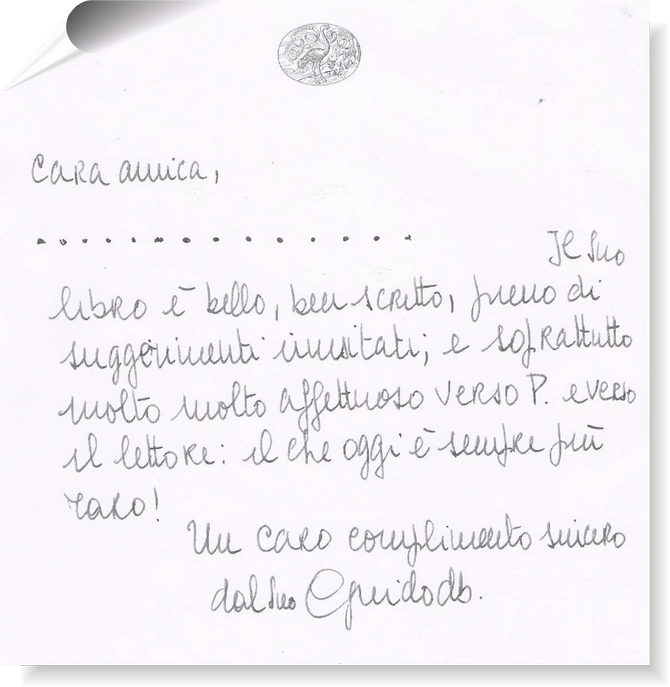 Cara amica,
. . . . . . . . . . . . . . . . .
Il suo
libro è bello, ben scritto, pieno di
suggerimenti inusitati; e soprattutto
molto molto affettuoso verso P. e verso
il lettore: il che oggi è sempre più
raro!
Un caro complimento sincero
dal suo Guido db.